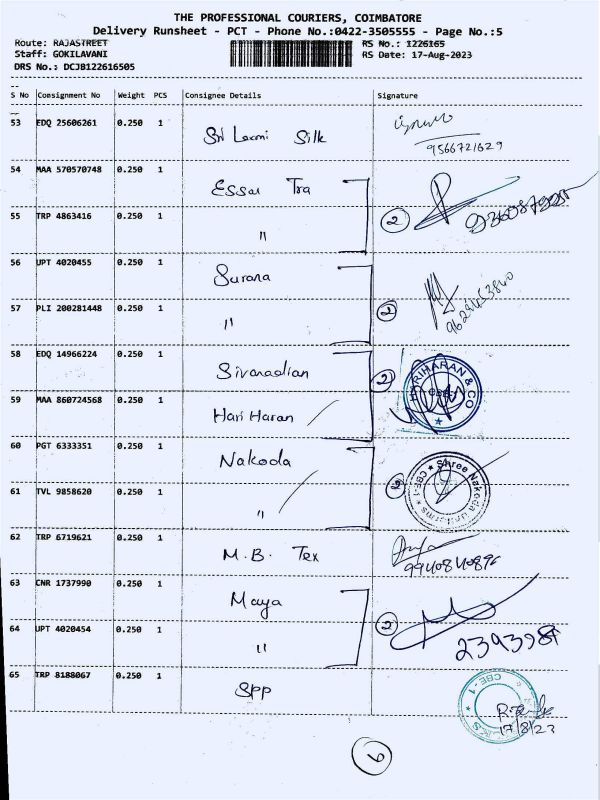 THE PROFESSIONAL COURIERS, COIMBATORE
Delivery Runsheet - PCT - Phone No.:0422-3505555 - Page No.:5
Route: RAJASTREET RS No.: 1226165
Staff: GOKILAVANI RS Date: 17-Aug-2023
DRS No.: DCJB122616505
S No Consignment No Weight PCS Consignee Details Signature
53 EDQ 25606261 0.250 1 Sri Laxmi Silk
9566721629
54 MAA 570570748 0.250 1 Essar Tra
55 TRP 4863416 0.250 1 " 2
56 UPT 4020455 0.250 1 Surana
57 PLI 200281448 0.250 1 " 2
58 EDQ 14966224 0.250 1 2 HARIHARAN & CO
59 MAA 860724568 0.250 1 Hari Haran
60 PGT 6333351 0.250 1 Nakoda
61 TVL 9858620 0.250 1 " 2 Shree Nakoda Uniforms CBE-1
62 TRP 6719621 0.250 1 M.B. Tex
63 CNR 1737990 0.250 1 Maya
64 UPT 4020454 0.250 1 " 2
65 TRP 8188067 0.250 1 SPP CBE-1
17/8/23
6